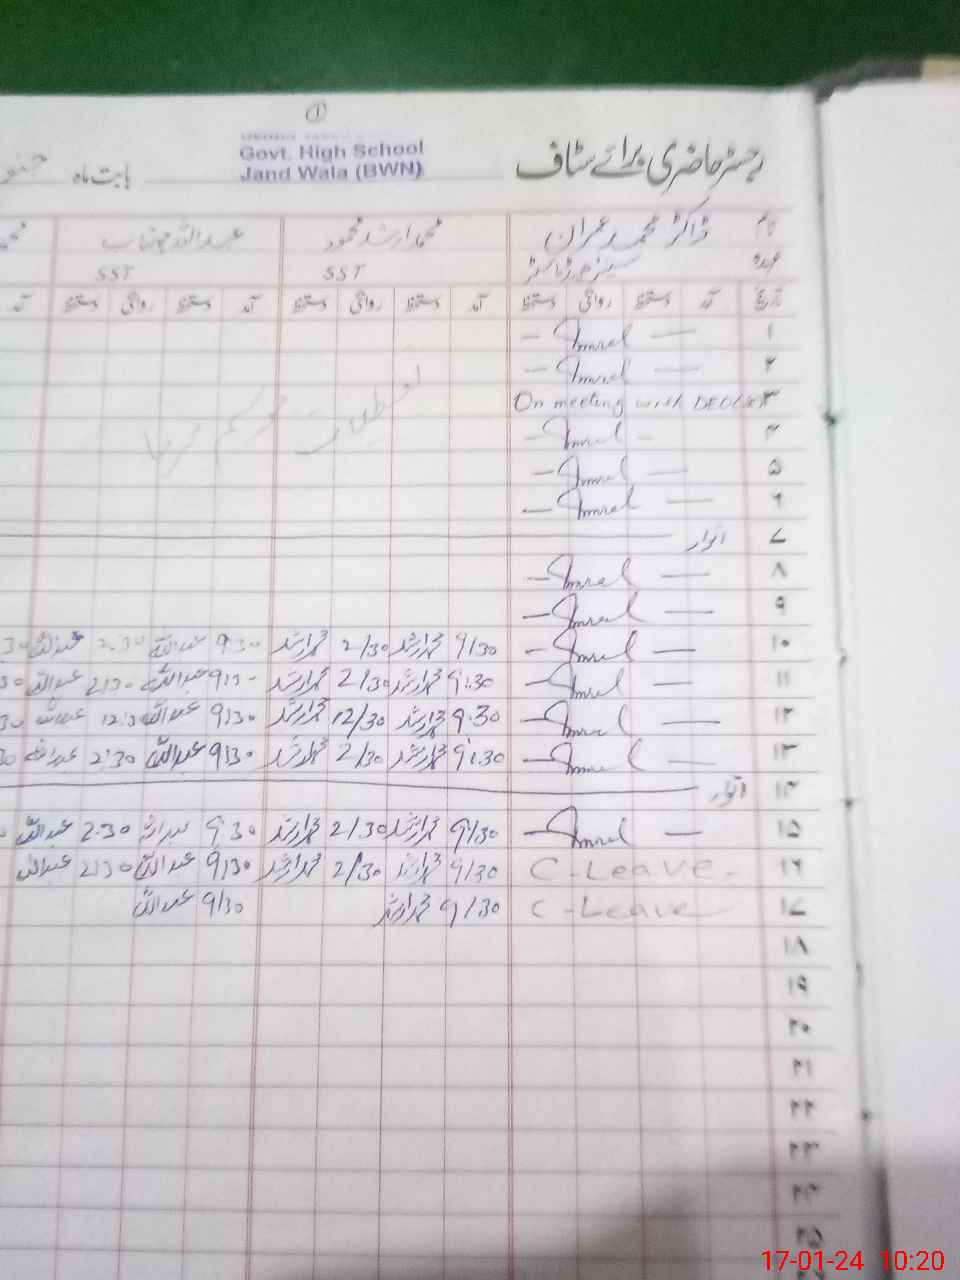 ①
Govt. High School
Jand Wala (BWN)
رجسٹر حاضری برائے سٹاف بابت ماہ
نام ڈاکٹر محمد عمران محمد ارشد محمود عبداللہ
عہدہ SST SST
تاریخ آمد دستخط روانگی دستخط آمد دستخط روانگی دستخط آمد دستخط روانگی دستخط آمد
۱ — Imral —
۲ — Imral —
۳ On meeting with
تعطیلات موسم سرما
۴ — Imral —
۵ — Imral —
۶ — Imral —
۷ اتوار
۸ — Imral —
۹ — Imral —
۱۰ — Imral — 9/30 محمد ارشد 2/30 محمد ارشد 9:30 عبداللہ 2:30 عبداللہ
۱۱ — Imral — 9:30 محمد ارشد 2/30 محمد ارشد 9:30 عبداللہ 2:30 عبداللہ
۱۲ — Imral — 9:30 محمد ارشد 12/30 محمد ارشد 9:30 عبداللہ 12:30 عبداللہ
۱۳ — Imral — 9:30 محمد ارشد 2/30 محمد ارشد 9:30 عبداللہ 2:30 عبداللہ
۱۴ اتوار
۱۵ — Imral — 9/30 محمد ارشد 2/30 محمد ارشد 9:30 عبداللہ 2:30 عبداللہ
۱۶ C-Leave- 9/30 محمد ارشد 2/30 محمد ارشد 9/30 عبداللہ 2:30 عبداللہ
۱۷ C-Leave 9/30 محمد ارشد 9/30 عبداللہ
۱۸
۱۹
۲۰
۲۱
۲۲
۲۳
۲۴
۲۵
17-01-24 10:20